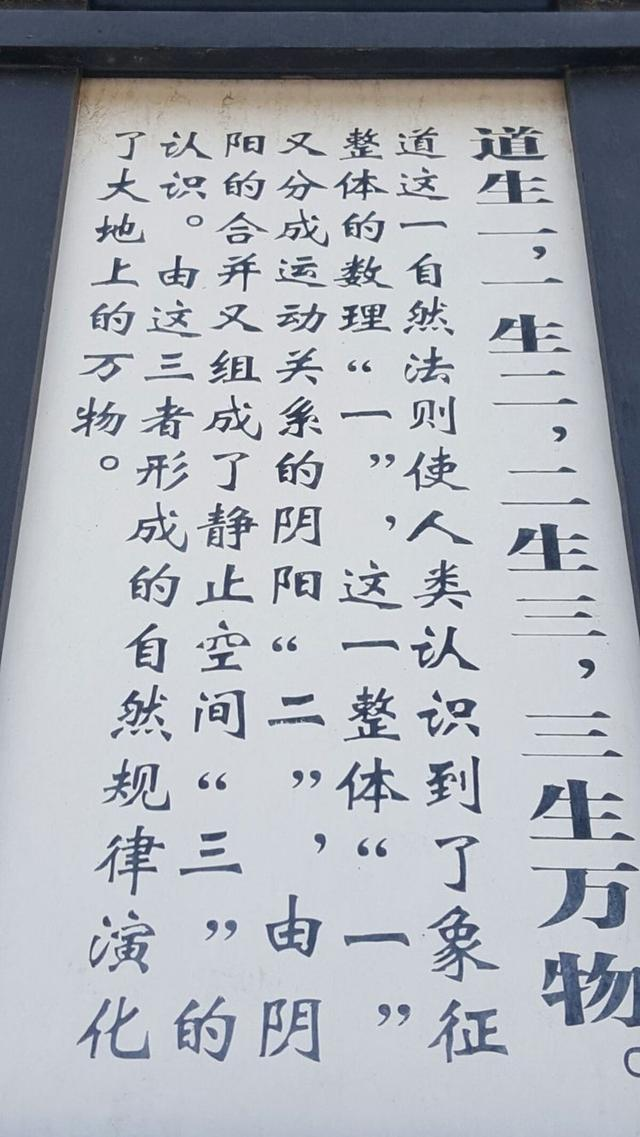 道生一，一生二，二生三，三生万物。
道这一自然法则使人类认识到了象征
整体的数理“一”，这一整体“一”
又分成运动关系的阴阳“二”，由阴
阳的合并又组成了静止空间“三”的
认识。由这三者形成的自然规律演化
了大地上的万物。